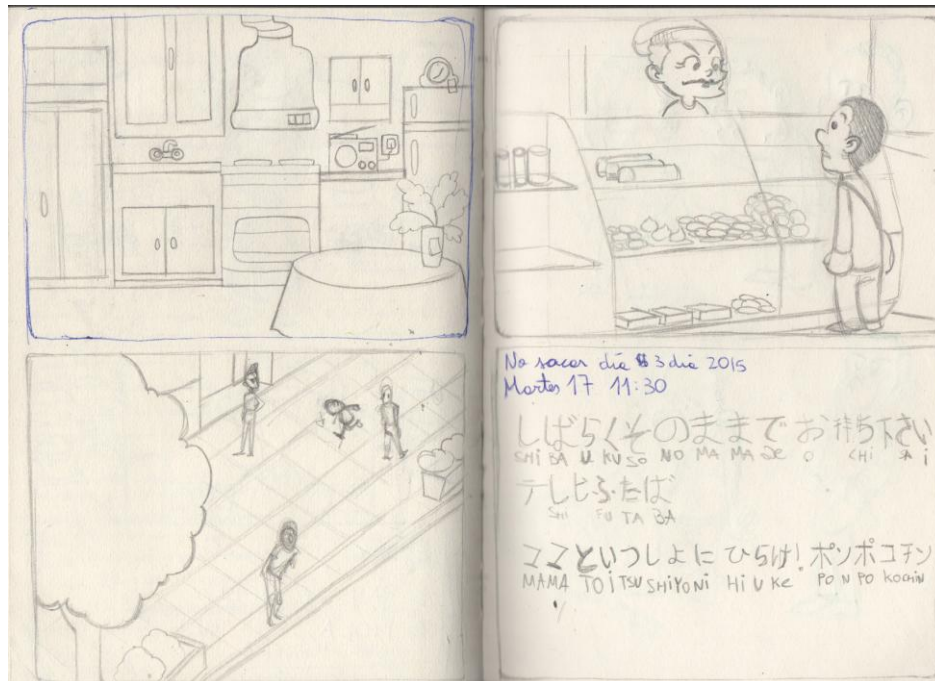 No sacar día 3 dic 2015
Martes 17 11:30
しばらくそのままで お待ち下さい
SHI BA U KU SO NO MA MA DE O CHI SA I
テレビふたば
SHI FU TA BA
ママといっしよに ひらけ! ポンポコチン
MAMA TO I TSU SHIYO NI HI U KE PO N PO KOCHIN